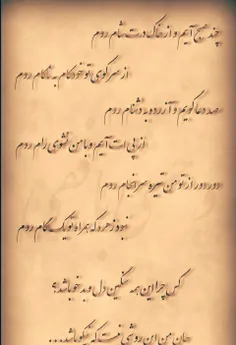 چند صبح آیم و از خاک درت شام روم
از سر کوی تو خودکام به ناکام روم
صد دعا گویم و آزرده به دشنام روم
از پی‌ات آیم و با من نشوی رام روم
دور دور از تو من تیره سرانجام روم
نبود زهره که همراه تو یک گام روم
کس چرا این همه سنگین دل و بدخو باشد؟
جان من این روشی نیست که نیکو باشد...